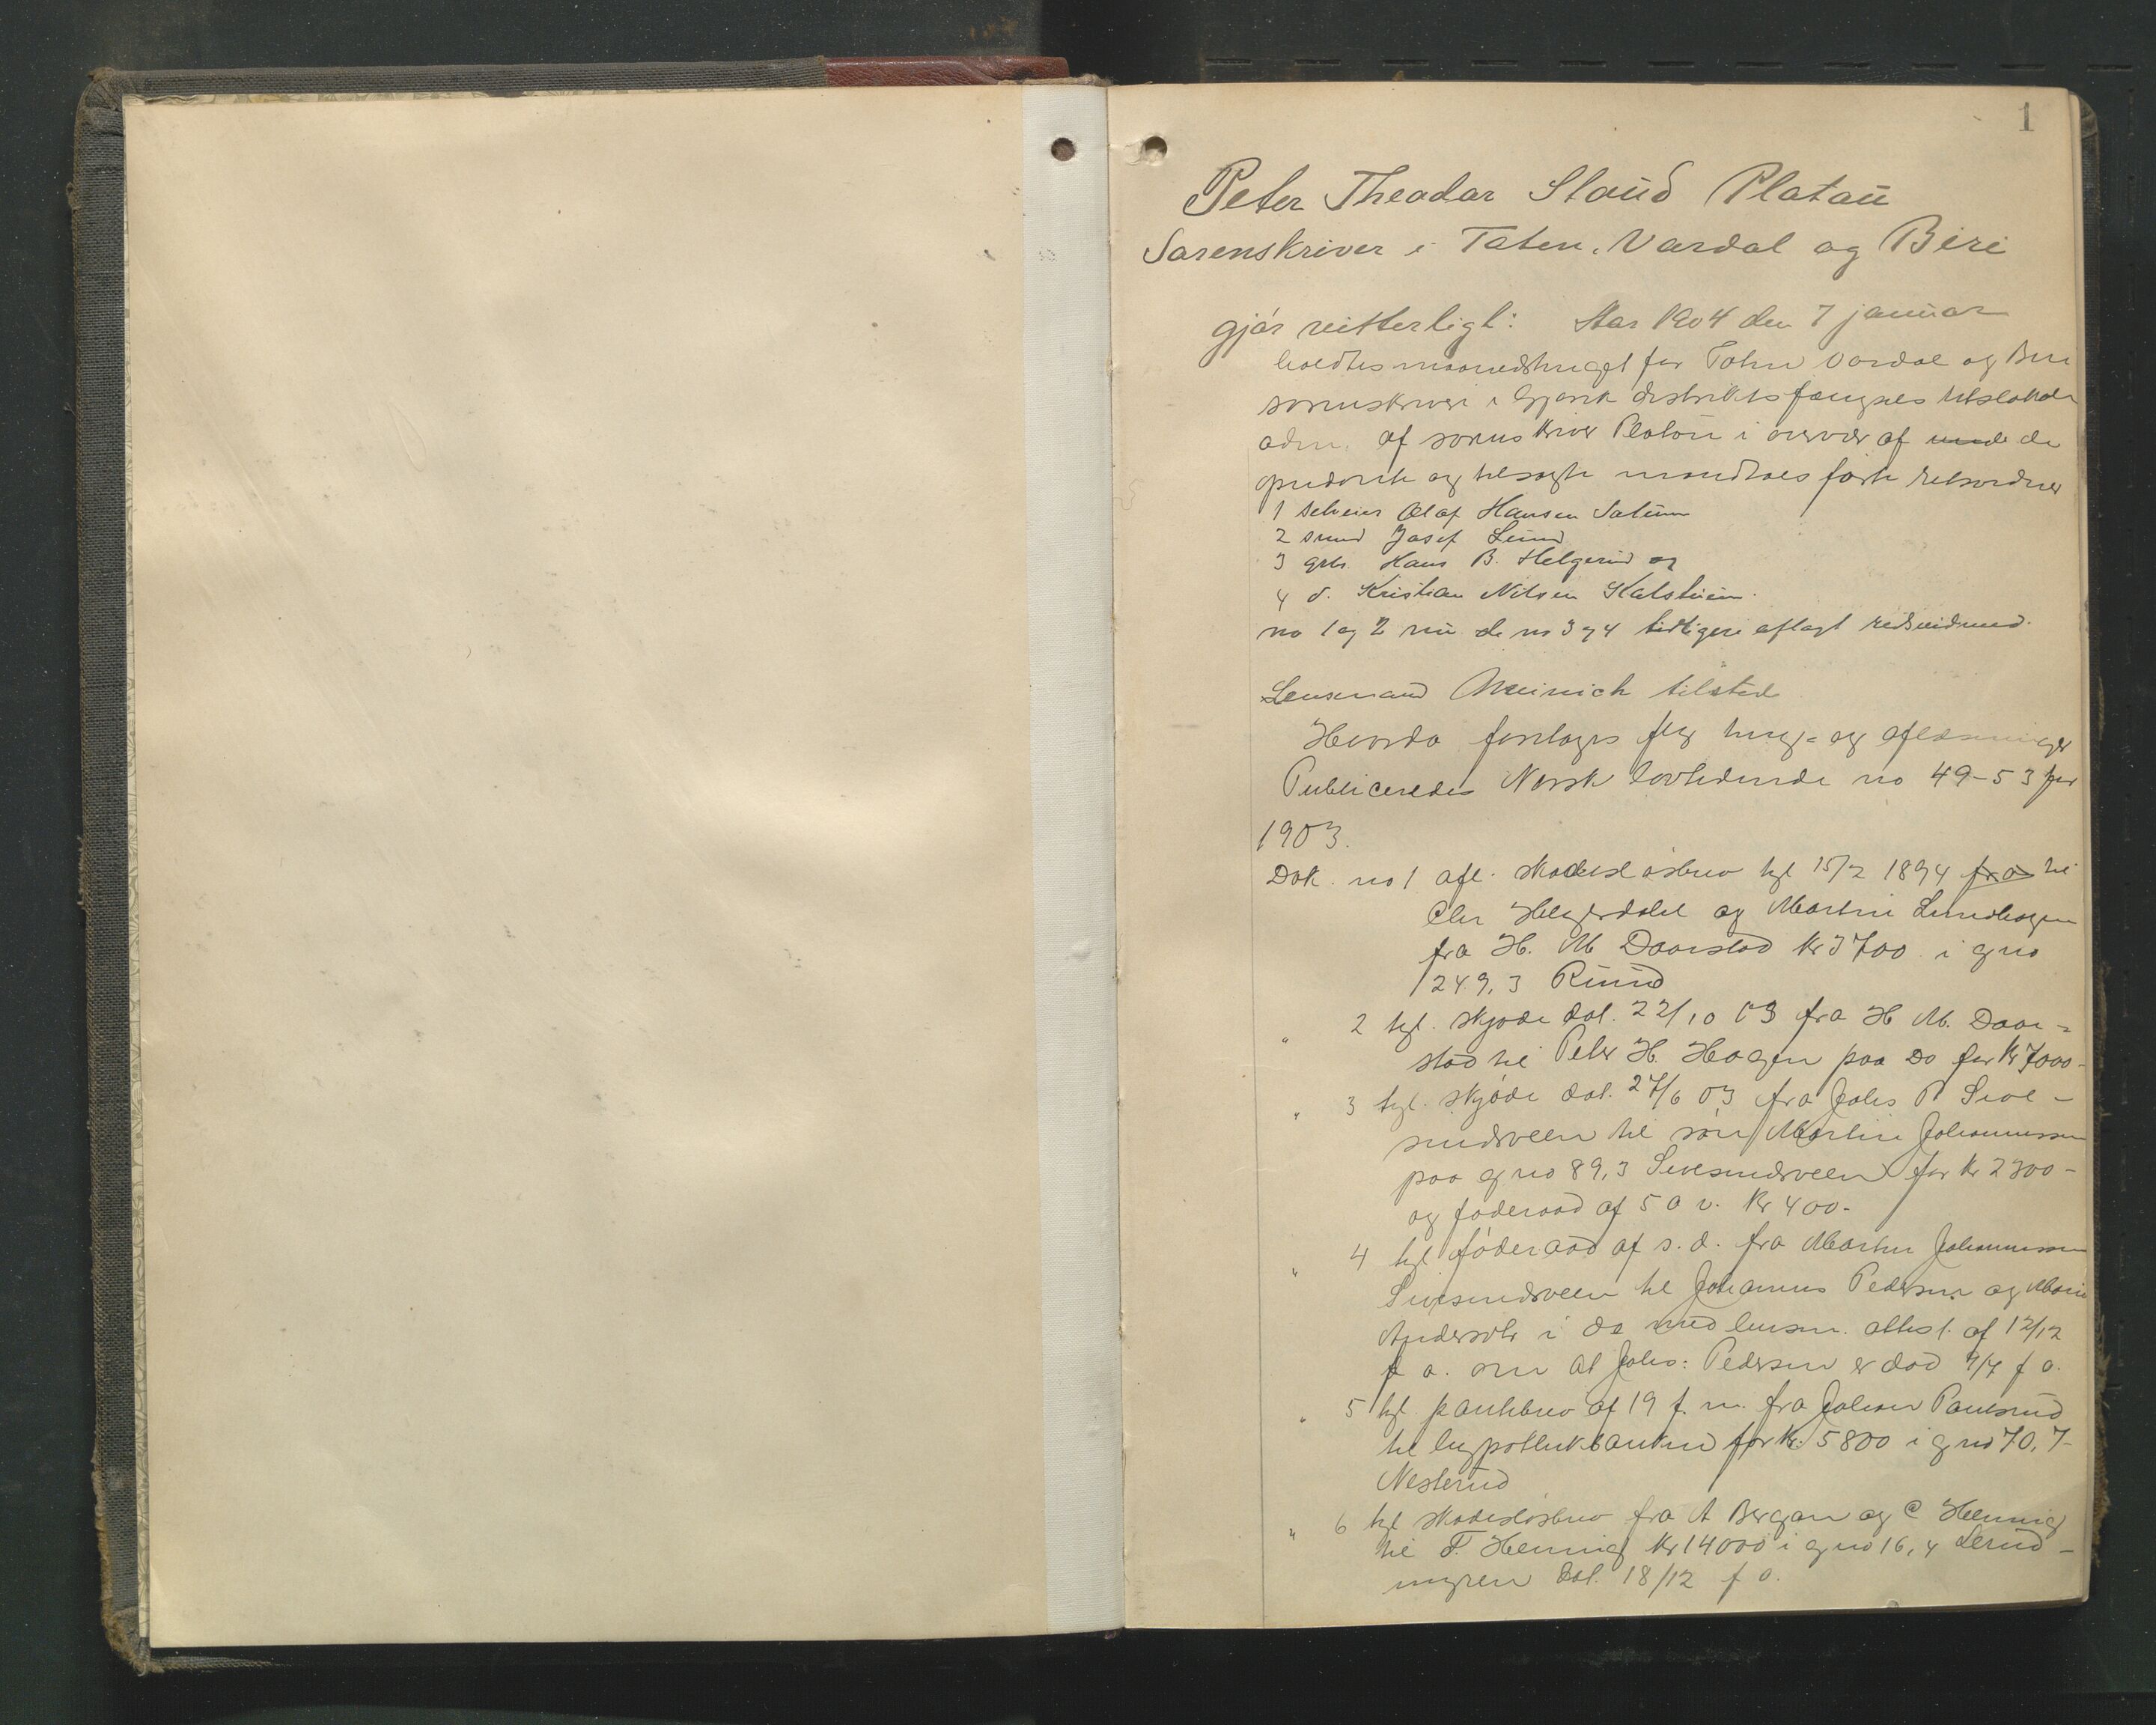 1
Peter Theodor Staud Platou
Sorenskriver i Toten, Vardal og Biri
gjør vitterligt: Aar 1904 den 7 januar
holdtes maanedsthinget for Toten Vardal og Biri
sorenskriveri i Gjøvik distriktsfængsels retslokale
adm. af sorenskriver Platou i overvær af de
opnævnte og tilsagte mandtalsførte retsvidner
1 selveier Olaf Hansen Satum
2 smed Josef Lund
3 grbr. Hans B. Helgerud og
4 d. Kristian Nilsen
no 1 og 2 nu de no 3 og 4 tidligere aflagt
Lensmand Meinich tilstede
Hvorda foretoges flg thingl- og aflæsninger
Publiceredes Norsk lovtidende no 49-53 for
1903.
Dok. no 1 afl. skadesløsbrev tgl 15/2 1894 fra til
og Martin Lundhagen
fra H. M Daarstad kr 3700 i gno
249,3 Ruud
" 2 tgl. skjøde dat. 22/10 03 fra H M. Daar-
stad til Peter H. Hagen paa do for kr 7000-
" 3 tgl. skjøde dat. 27/6 03 fra Johs P Sive-
sindsveen til søn Martin Johannessen
paa gno 89,3 Sivesindsveen for kr 2300-
og føderaad af 5 a v. kr 400-
" 4 tgl føderaad af s. d. fra Martin Johannessen
Sivesindsveen til Johannes Pedersen og Marie
Andersdtr i do med lensm. attest. af 12/12
f a. om at Johs: Pedersen er død f a.
" 5 tgl. pantebrev af 19 f. m. fra Johan Paulsrud
til hypothekbanken for kr. 5800 i gno 70,7
Nesterud
" 6 tgl skadesløsbrev fra A Bergan og C Hennig
til F. Hennig kr 14000 i gno 16,4
myren dat. 18/12 f a.